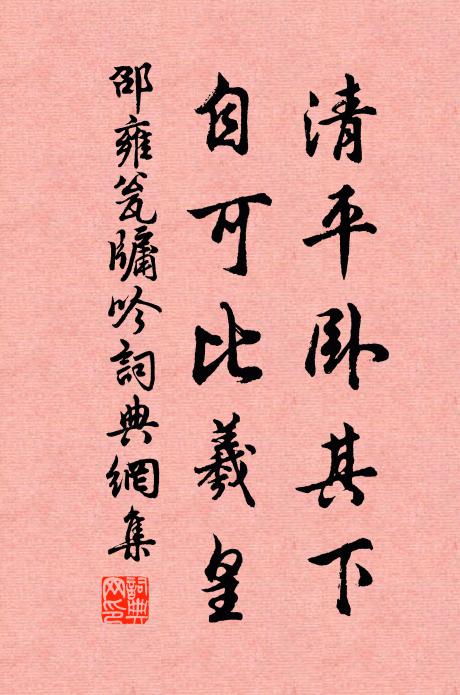 清平卧其下
自可比羲皇
邵雍瓮牖吟詞典網集
詞典網印